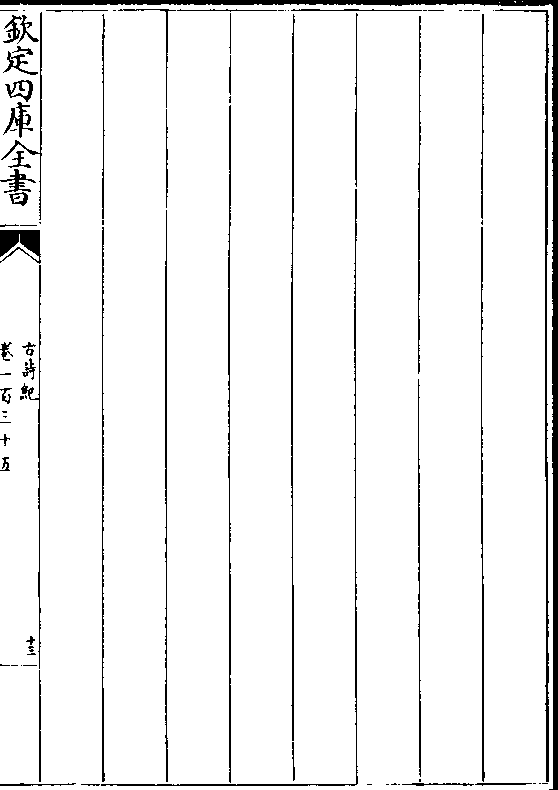 欽定四庫全書
古詩紀
卷一百三十五
十三